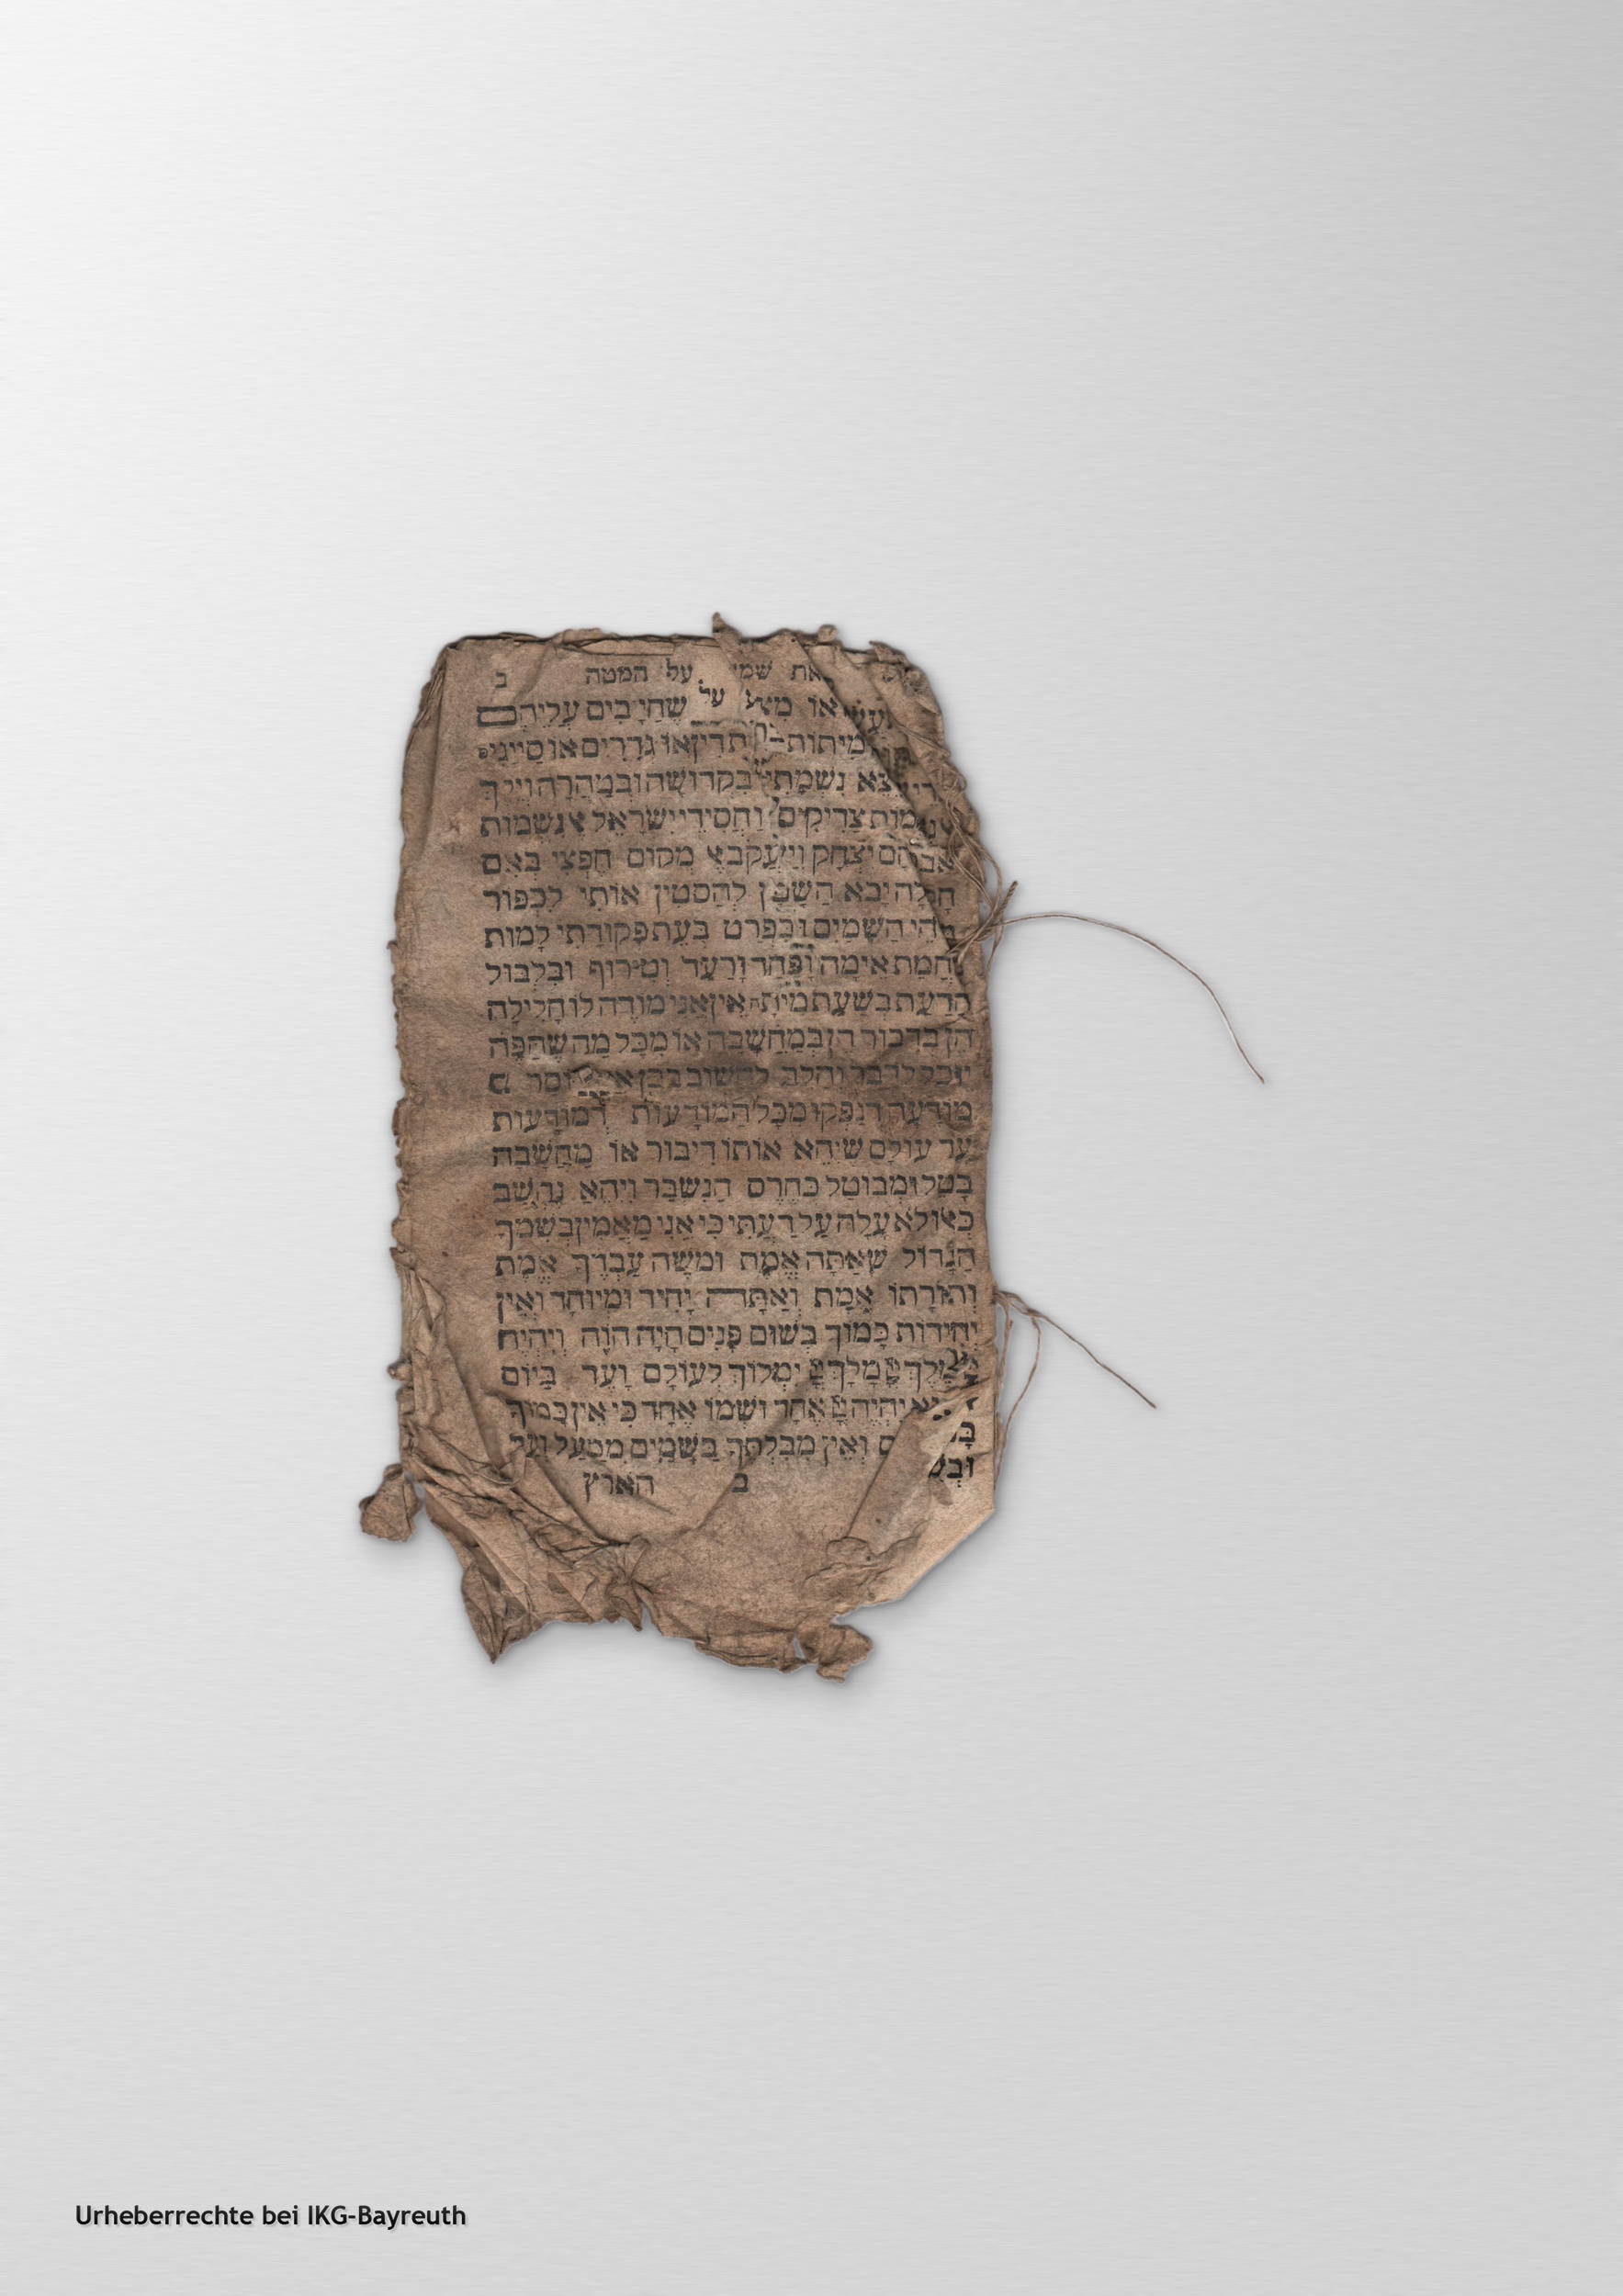 את שמע על המטה ב
או שֶׁחַיָבִים עֲלֵיהֶם
מִיתוֹת תדין אוֹ גְדָרִים אוֹ סייגים
נִשְׁמָתִי בִּקְדוּשָׁה וּבְטָהֳרָה וְיֵלֵךְ
צַדִיקִים וַחֲסִידֵי יִשְׂרָאֵל אֵ נִשְׁמוֹת
אברהם יִצְחָק וְיַעֲקֹב אֵ מְקוֹם חֶפְצִי בְּאִם
חלילָה יָבֹא הַשָׂטָן לְהַסְטִין אוֹתִי לִכְפּוֹר
הַשָׁמַיִם וּבִפְרַט בְּעֵת פְּקוּדָתִי לָמוּת
מֵחֲמַת אֵימָה וָפַחַד וָרַעַד וְטֵרוּף וּבִלְבּוּל
הַדַעַת בִּשְׁעַת מִיתָה אֵין אֲנִי מוֹדֶה לוֹ חָלִילָה
הֵן בְּדִבּוּר הֵן בְּמַחֲשָׁבָה אוֹ מִכָּל מַה שֶׁהַפֶּה
יוּכַל לְדַבֵּר וְהַלֵב לַחְשׁוֹב בְּכֵן
מוֹדָעָה דְנָפְקוּ מִכָּל הַמוֹדָעוֹת דְמוֹדָעוֹת
עַד עוֹלָם שֶׁיְהֵא אוֹתוֹ דִיבּוּר אוֹ מַחֲשָׁבָה
בָּטֵל וּמְבוּטָל כְּחֶרֶס הַנִשְׁבַּר וִיהֵא נֶחְשַׁב
כְּאִלוּ לֹא עָלָה עַל דַעְתִּי כִּי אֲנִי מַאֲמִין בְּשִׁמְךָ
הַגָדוֹל שֶׁאַתָּה אֱמֶת וּמֹשֶׁה עַבְדֶךָ אֱמֶת
וְתוֹרָתוֹ אֱמֶת וְאַתָּה יָחִיד וּמְיוּחָד וְאֵין
יְחִידוּת כָּמוֹךָ בְּשׁוּם פָּנִים הָיָה הוֹוֶה וְיִהְיֶה
מֶלֶךְ מָלָךְ יִמְלוֹךְ לְעוֹלָם וָעֶד בַּיוֹם
יִהְיֶה אֶחָד וּשְׁמוֹ אֶחָד כִּי אֵין כָּמוֹךָ
וְאֵין מִבַּלְתֶּךָ בַּשָׁמַיִם מִמַעַל וְעַל
ב הארץ
Urheberrechte bei IKG-Bayreuth